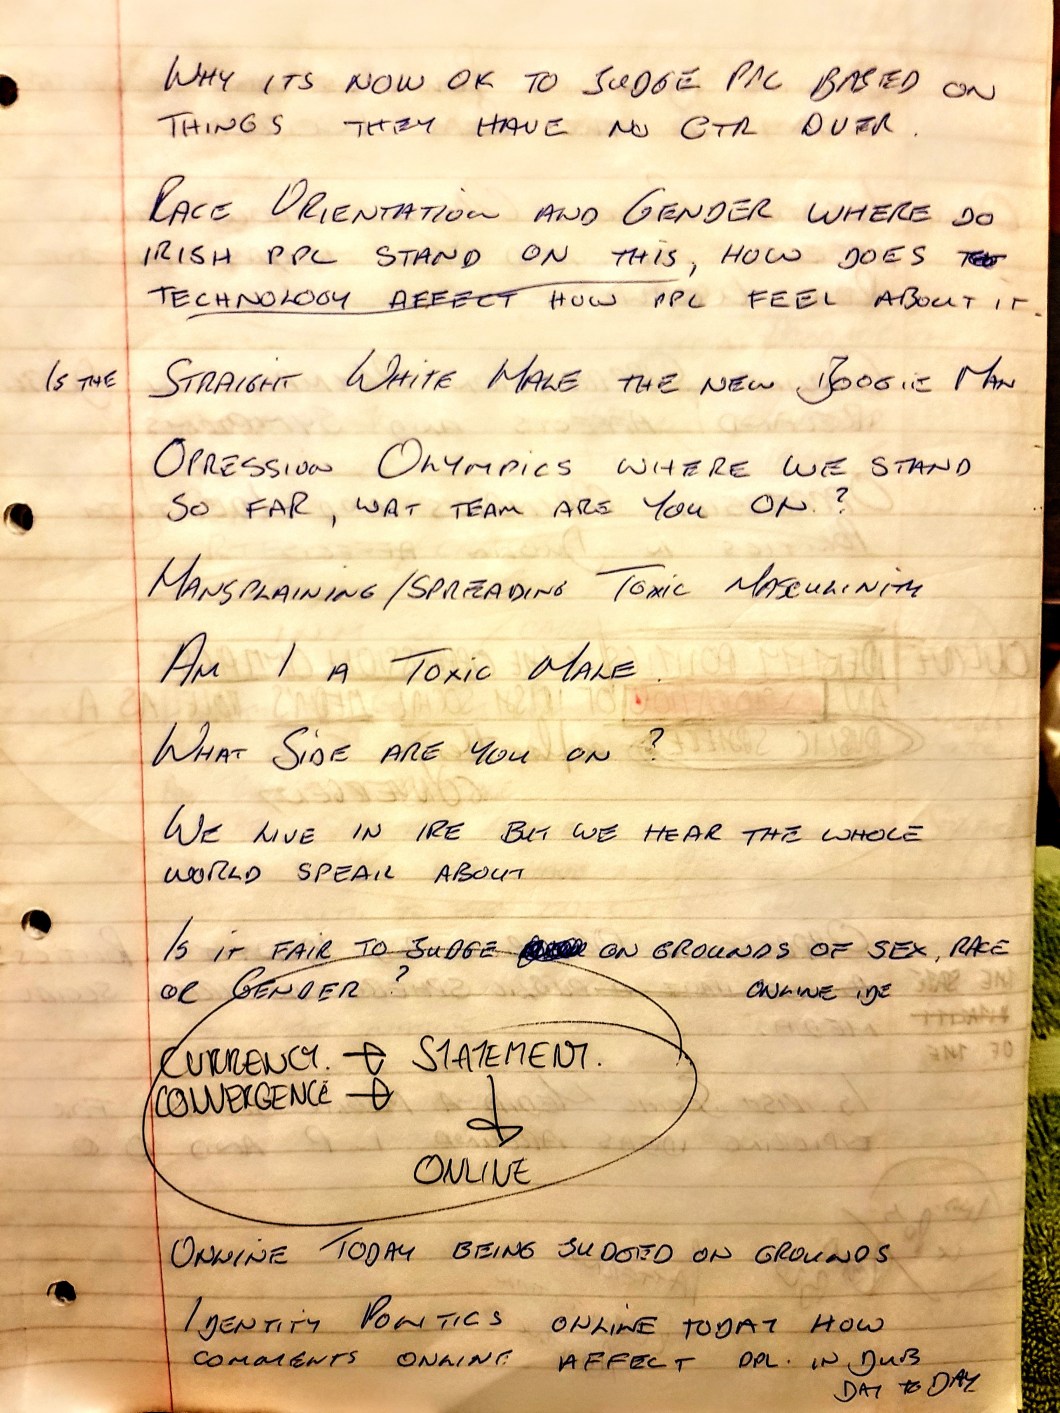 WHY ITS NOW OK TO JUDGE PPL BASED ON
THINGS THEY HAVE NO CTR OVER.
RACE ORIENTATION AND GENDER WHERE DO
IRISH PPL STAND ON THIS, HOW DOES
TECHNOLOGY AFFECT HOW PPL FEEL ABOUT IT.
IS THE STRAIGHT WHITE MALE THE NEW BOOGIE MAN
OPRESSION OLYMPICS WHERE WE STAND
SO FAR, WAT TEAM ARE YOU ON.?
MANSPLAINING/SPREADING TOXIC MASCULINITY
AM I A TOXIC MALE.
WHAT SIDE ARE YOU ON ?
WE LIVE IN IRE BUT WE HEAR THE WHOLE
WORLD SPEAK ABOUT
IS IT FAIR TO JUDGE ON GROUNDS OF SEX, RACE
OR GENDER ? ONLINE IDE
CURRENCY. → STATEMENT.
CONVERGENCE →
↓
ONLINE
ONLINE TODAY BEING JUDGED ON GROUNDS
IDENTITY POLITICS ONLINE TODAY HOW
COMMENTS ONLINE AFFECT PPL. IN DUB
DAY TO DAY